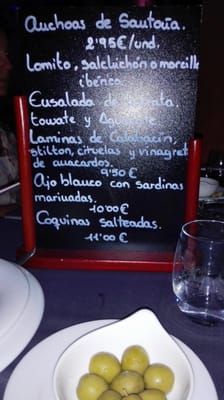 Anchoas de Santoña.
2'95€/und.
Lomito, salchichón o morcilla
ibérica.
Ensalada de
tomate y Aguacate
Laminas de Calabacín,
stilton, ciruelas y vinagreta
de anacardos.
9'50€
Ajo blanco con sardinas
marinadas.
10'00€
Coquinas salteadas.
11'00€